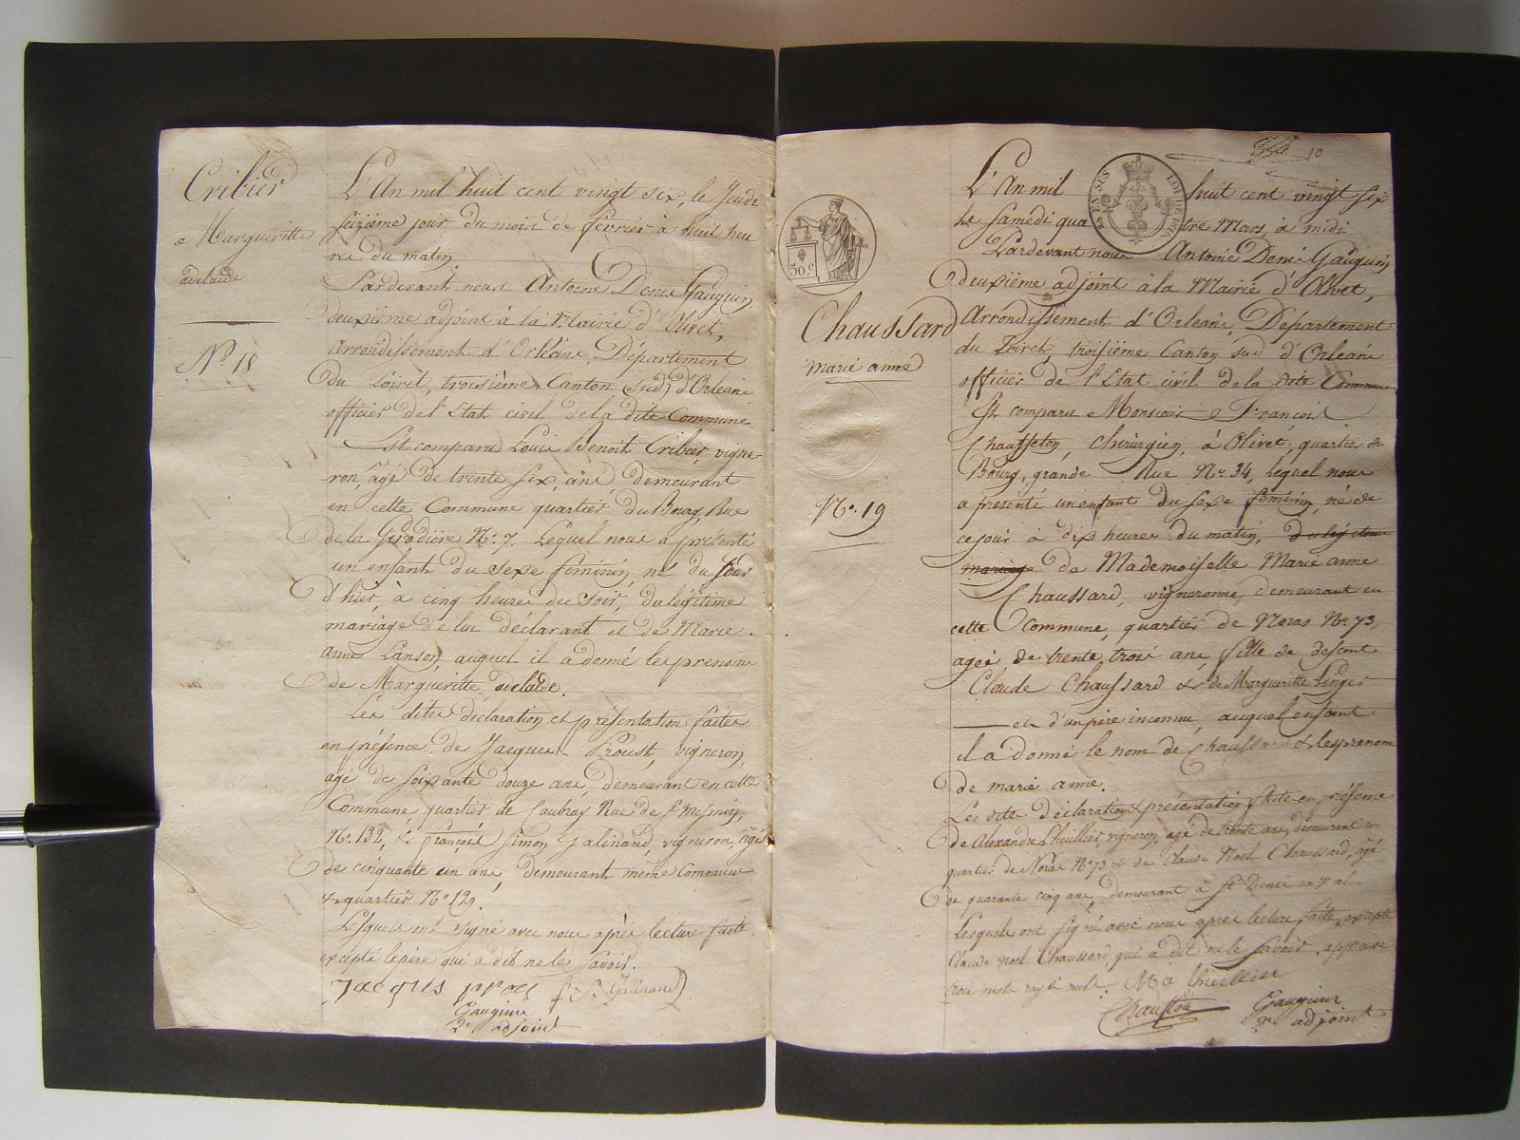 Cribier
Margueritte
adelaide
N.º 18
L'An mil huit cent vingt six, le Jeudi
seizième jour du mois de fevrier à huit heu
re du matin
Pardevant nous Antoine Denis Gauguin
deuxième adjoint à la Mairie d'Olivet,
Arrondissement d'Orléans, Département
du Loiret, troisième Canton sud d'Orléans
officier de l'Etat civil de la dite Commune
Est comparu Louis Benoit Cribier, vigne-
ron, âgé de trente six ans demeurant
en cette Commune quartier du Bourg, Rue
de la N.º 7. Lequel nous a présenté
un enfant du sexe féminin, né du jour
d'hier, à cinq heures du soir, du légitime
mariage de lui déclarant et de Marie
anne Lanson, auquel il a donné les prenoms
de Margueritte adelaide.
Les dites déclaration et présentation faites
en présence de Jacques Proust, vigneron,
agé de soixante douze ans, demeurant en cette
Commune quartier de Coubray Rue de St. Mesmin,
N.º 132, & françois Simon Galinand, vigneron, âgé
de cinquante un ans, demeurant même Commune
& quartier N.º 129.
Lesquels ont signé avec nous après lecture faite
excepté le père qui a dit ne le savoir.
Jacques proust
Gauguin
2e adjoint
10
30 c
Chaussard
marie anne
N.º 19
L'An mil huit cent vingt six
le Samedi quatre Mars, à midi
Pardevant nous Antoine Denis Gauguin,
deuxième adjoint à la Mairie d'Olivet,
Arrondissement d'Orleans, Departement
du Loiret, troisième Canton sud d'Orleans
officier de l'Etat civil de la dite Commune
Est comparu Monsieur François
Chaufton, chirurgien, à Olivet, quartier du
Bourg, grande Rue N.º 34, lequel nous
a presenté un enfant du sexe féminin, né de
ce jour à dix heures du matin, du légitime
mariage de Mademoiselle Marie anne
Chaussard, vigneronne, demeurant en
cette commune, quartier de Noras N.º 73,
agée de trente trois ans, fille de defunt
Claude Chaussard & de Margueritte
et d'un père inconnu, auquel enfant
il a donné le nom de Chaussard & les prenoms
de marie anne.
Les dites déclaration & présentation faite en présence
de Alexandre Lhuillier, vigneron, agé de trente ans, demeurant
quartier de Noras N.º 73 & de Claude Noel Chaussard, agé
de quarante cinq ans, demeurant à St. Denis en val
Lesquels ont signé avec nous après lecture faite, excepté
Claude Noel Chaussard qui a dit ne le savoir. approuvé
trois mots rayés nuls. Lhuillier
Chaufton
Gauguin
2e adjoint